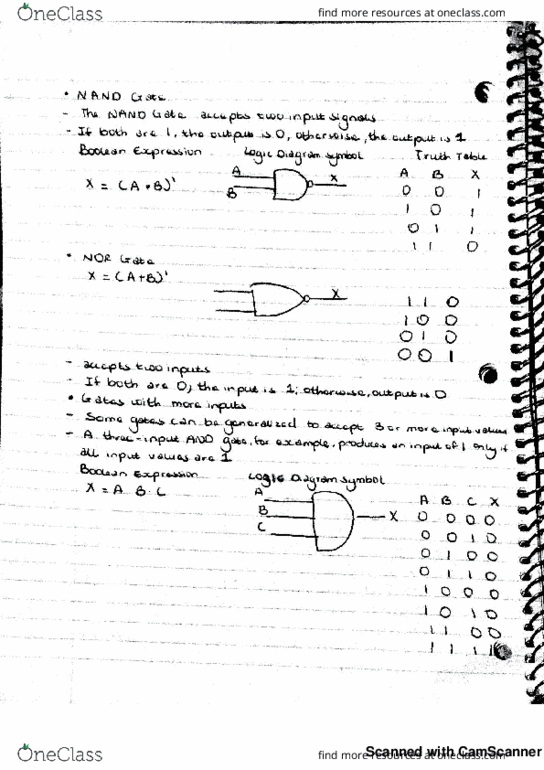 OneClass
find more resources at oneclass.com
• NAND Gate
- The NAND Gate accepts two input signals
- If both are 1, the output is 0, otherwise, the output is 1
Boolean Expression Logic Diagram symbol Truth Table
A A B X
X = (A • B)' X 0 0 1
B 1 0 1
0 1 1
1 1 0
• NOR Gate
X = (A+B)'
X
1 1 0
1 0 0
0 1 0
0 0 1
- accepts two inputs
- If both are 0, the input is 1; otherwise, output is 0
• Gates with more inputs
- Some gates can be generalized to accept 3 or more input values
- A three-input AND gate, for example, produces an input of 1 only if
all input values are 1
Boolean Expression Logic Diagram symbol
X = A B · C A A B C X
B X 0 0 0 0
C 0 0 1 0
0 1 0 0
0 1 1 0
1 0 0 0
1 0 1 0
1 1 0 0
1 1 1 1
Scanned with CamScanner
OneClass
find more resources at oneclass.com